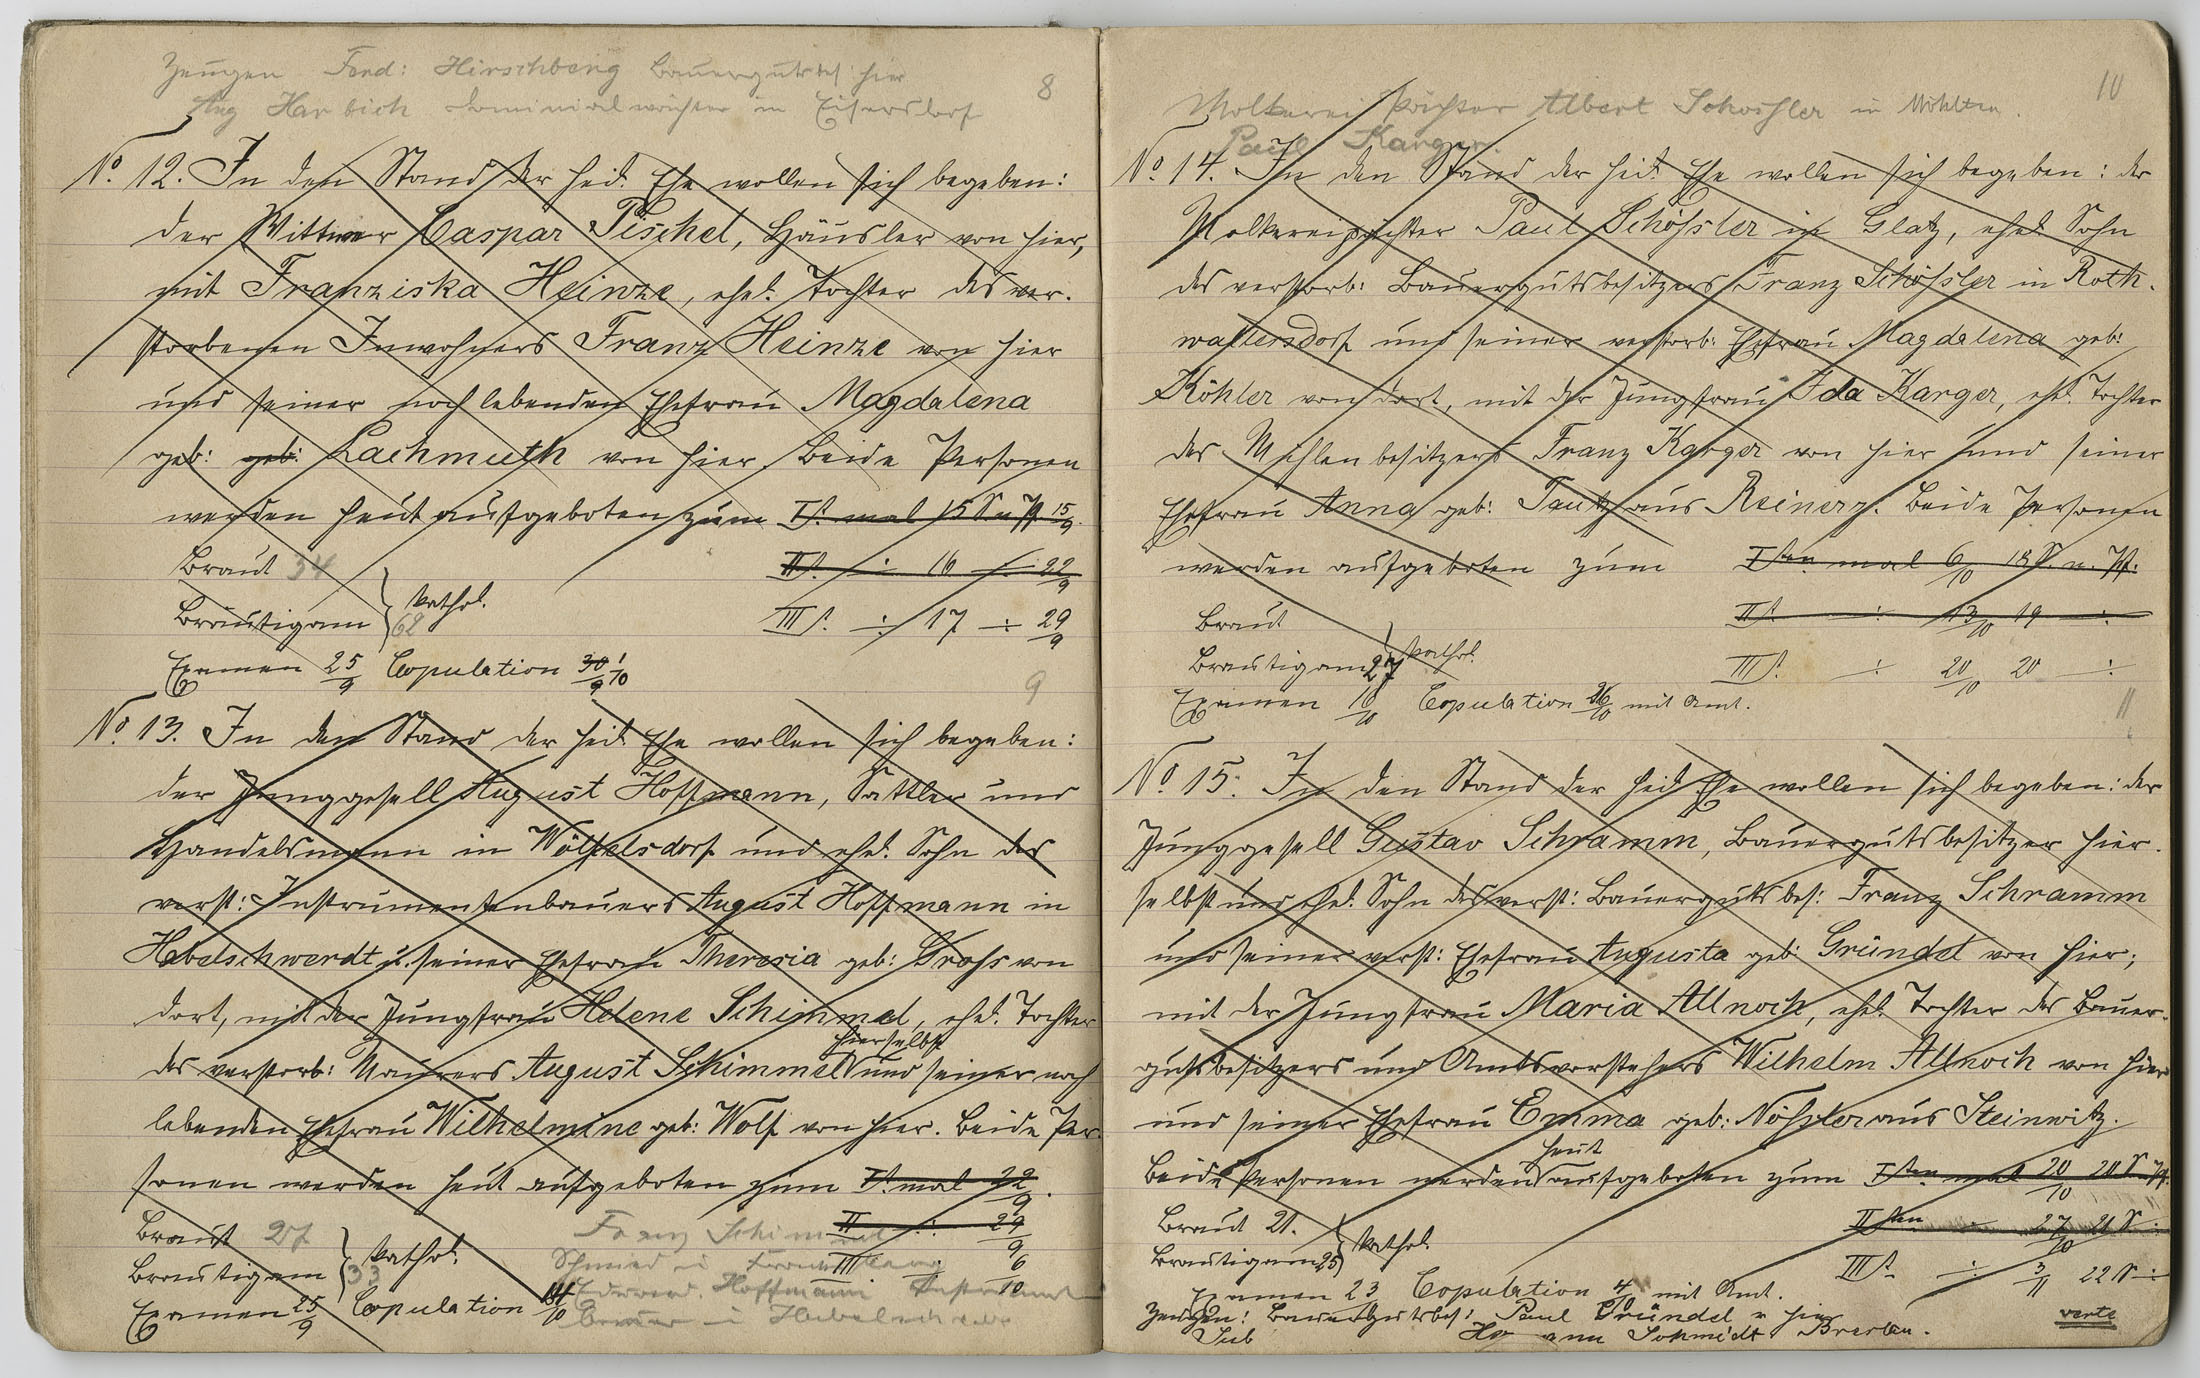 Zeugen Ferd: Hirschberg Bauergutsbes: hier
8
Aug Harbich Dominialwächter in Eisersdorf
No. 12. In den Stand der heil. Ehe wollen sich begeben:
der Wittwer Caspar Pischel, Häusler von hier,
mit Franziska Heinze, ehel. Tochter des ver-
storbenen Inwohners Franz Heinze von hier
und seiner noch lebenden Ehefrau Magdalena
geb: geb: Lachmuth von hier. Beide Personen
werden heut aufgeboten zum It. mal 15 S n Pf 15/9.
Braut 34
IIt. ÷ 16 ÷ 22/9
Bräutigam 62 } kathol.
IIIt. ÷ 17 ÷ 29/9
Examen 25/9 Copulation 30/9 1/10
9
No. 13. In den Stand der heil. Ehe wollen sich begeben:
der Junggesell August Hoffmann, Sattler und
Handelsmann in Wölfelsdorf und ehel. Sohn des
verst: Instrumentenbauers August Hoffmann in
Habelschwerdt u. seiner Ehefrau Theresia geb: Gross von
dort, mit der Jungfrau Helene Schimmel, ehel. Tochter
hierselbst
des verstorb: Maurers August Schimmel und seiner noch
lebenden Ehefrau Wilhelmine geb: Wolf von hier. Beide Per-
sonen werden heut aufgeboten zum It. mal 22/9.
Braut 27
Franz Schimmel
II ÷ 29/9
Bräutigam 33 } kathol.
Schmied in
III ÷ 6/10
Hoffmann Instrument
Examen 25/9 Copulation /10
bauer in Habelschwerdt
10
Molkerei Pächter Albert Schössler in Möhlten.
Paul Karger.
No. 14. In den Stand der heil. Ehe wollen sich begeben: der
Molkereipächter Paul Schössler in Glatz, ehel. Sohn
des verstorb: Bauergutsbesitzers Franz Schössler in Roth-
waltersdorf und seiner verstorb: Ehefrau Magdalena geb:
Köhler von dort, mit der Jungfrau Ida Karger, ehel. Tochter
des Mühlenbesitzers Franz Karger von hier und seiner
Ehefrau Anna geb: Tautz aus Reinerz. Beide Personen
werden aufgeboten zum Iten mal 6/10 18 S. n. Pf.
Braut
IIt. ÷ 13/10 19 ÷
Bräutigam 27 } kathol.
IIIt. ÷ 20/10 20 ÷
Examen 16/10 Copulation 26/10 mit Amt.
11
No. 15. In den Stand der heil. Ehe wollen sich begeben: der
Junggesell Gustav Schramm, Bauergutsbesitzer hier-
selbst und ehel. Sohn des verst: Bauergutsbes: Franz Schramm
und seiner verst: Ehefrau Augusta geb: Gründel von hier;
mit der Jungfrau Maria Allnoch, ehel. Tochter des Bauer-
gutsbesitzers und Amtsvorstehers Wilhelm Allnoch von hier
und seiner Ehefrau Emma geb: Nössler aus Steinwitz.
heut
Beide Personen werden aufgeboten zum Iten mal 20/10 20 S n Pf.
Braut 21.
IIten ÷ 27/10 21 S ÷
Bräutigam 25 } kathol.
IIIt. ÷ 3/11 22 S ÷
Examen 23 Copulation mit Amt.
Zeugen: Bauergutsbes: Paul Gründel v hier
verte
Schmidt Breslau.